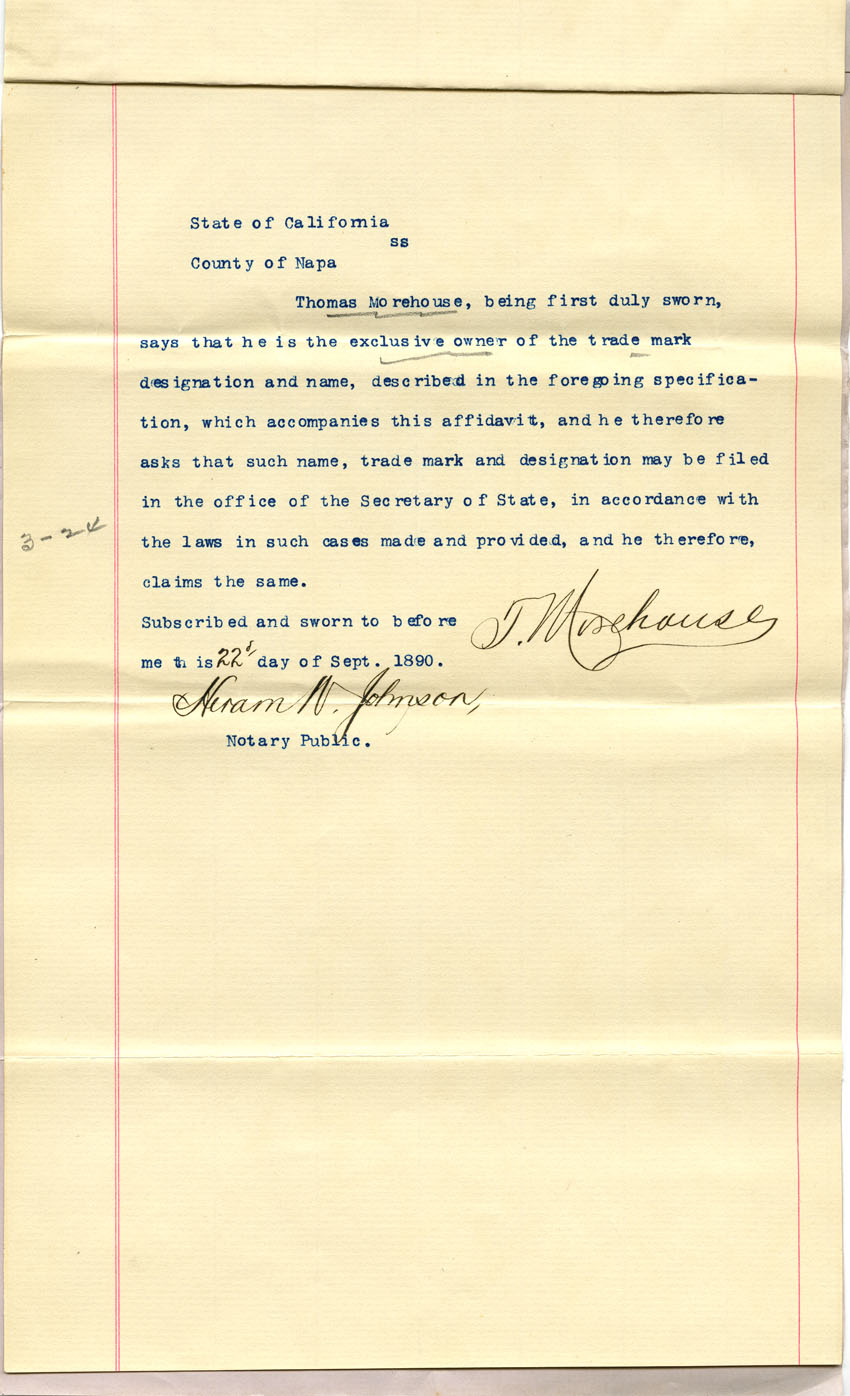 State of California
ss
County of Napa
Thomas Morehouse, being first duly sworn,
says that he is the exclusive owner of the trade mark
designation and name, described in the foregoing specifica-
tion, which accompanies this affidavit, and he therefore
asks that such name, trade mark and designation may be filed
in the office of the Secretary of State, in accordance with
3-24
the laws in such cases made and provided, and he therefore,
claims the same.
Subscribed and sworn to before
T. Morehouse
me this 22d, day of Sept. 1890.
Hiram W. Johnson,
Notary Public.